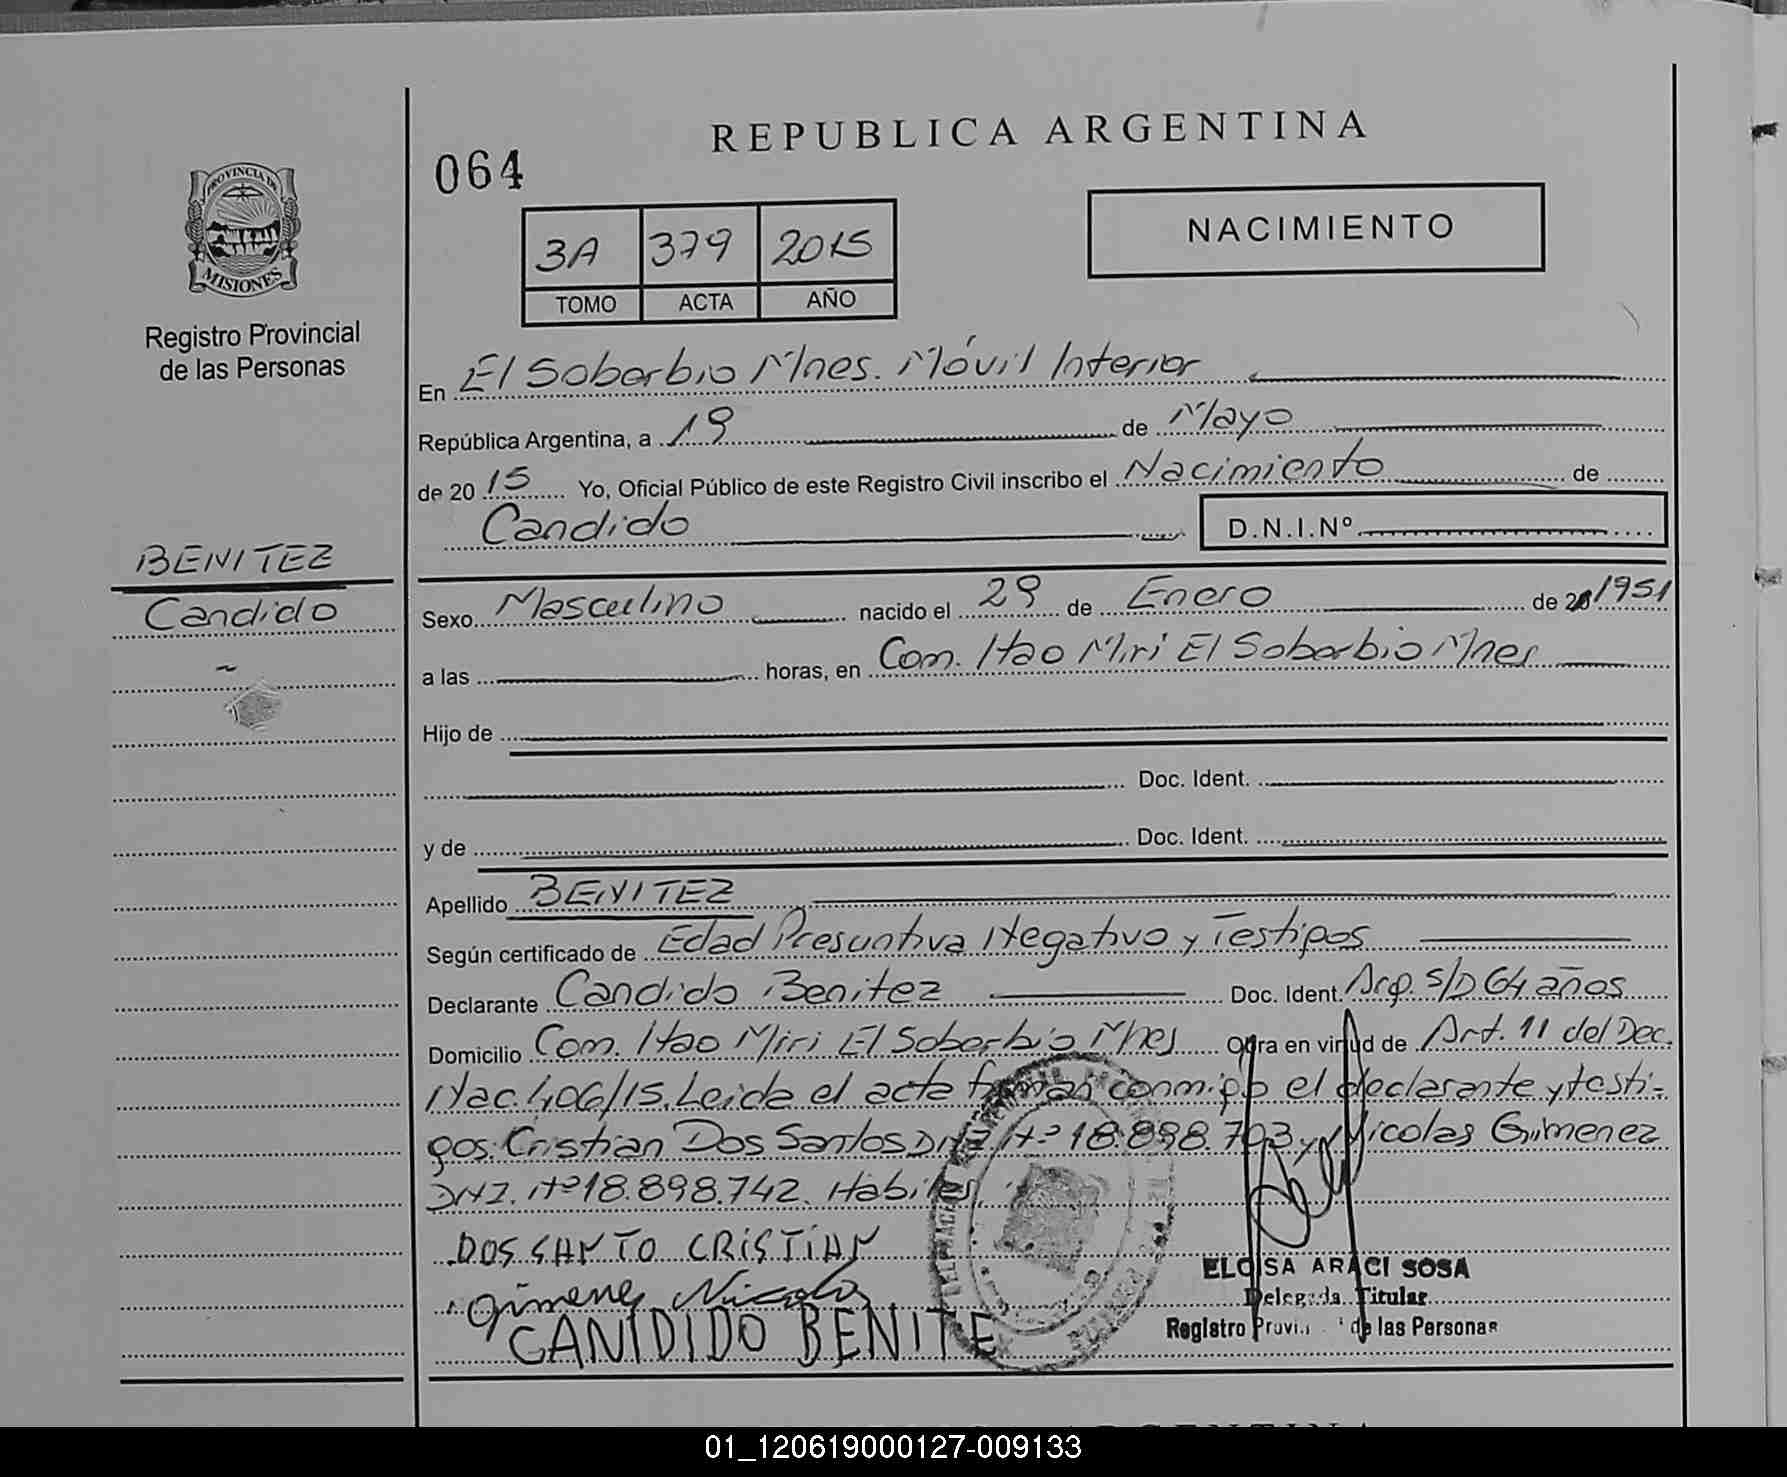 REPUBLICA ARGENTINA
064
PROVINCIA DE
MISIONES
Registro Provincial
de las Personas
3A 379 2015
TOMO ACTA AÑO
NACIMIENTO
En El Soberbio Mnes. Móvil Interior
República Argentina, a 19 de Mayo
de 2015 Yo, Oficial Público de este Registro Civil inscribo el Nacimiento de
Candido D.N.I.Nº
BENITEZ
Candido
Sexo Masculino nacido el 29 de Enero de 20 1951
a las horas, en Com. Itao Miri El Soberbio Mnes
Hijo de
Doc. Ident.
y de Doc. Ident.
Apellido BENITEZ
Según certificado de Edad Presuntiva Negativo y Testigos
Declarante Candido Benitez Doc. Ident. Arg. S/D 64 años
Domicilio Com. Itao Miri El Soberbio Mnes Obra en virtud de Art. 11 del Dec.
Nac. 406/15. Leida el acta firman conmigo el declarante y testi-
gos: Cristian Dos Santos DNI. Nº 18.898.703 y Nicolas Gimenez
DNI. Nº 18.898.742. Habiles.
DOS SANTO CRISTIAN
Gimenez Nicolas
CANDIDO BENITE
ELOISA ARACI SOSA
Delegada Titular
Registro Provi. de las Personas
ARGENTINA
01_120619000127-009133